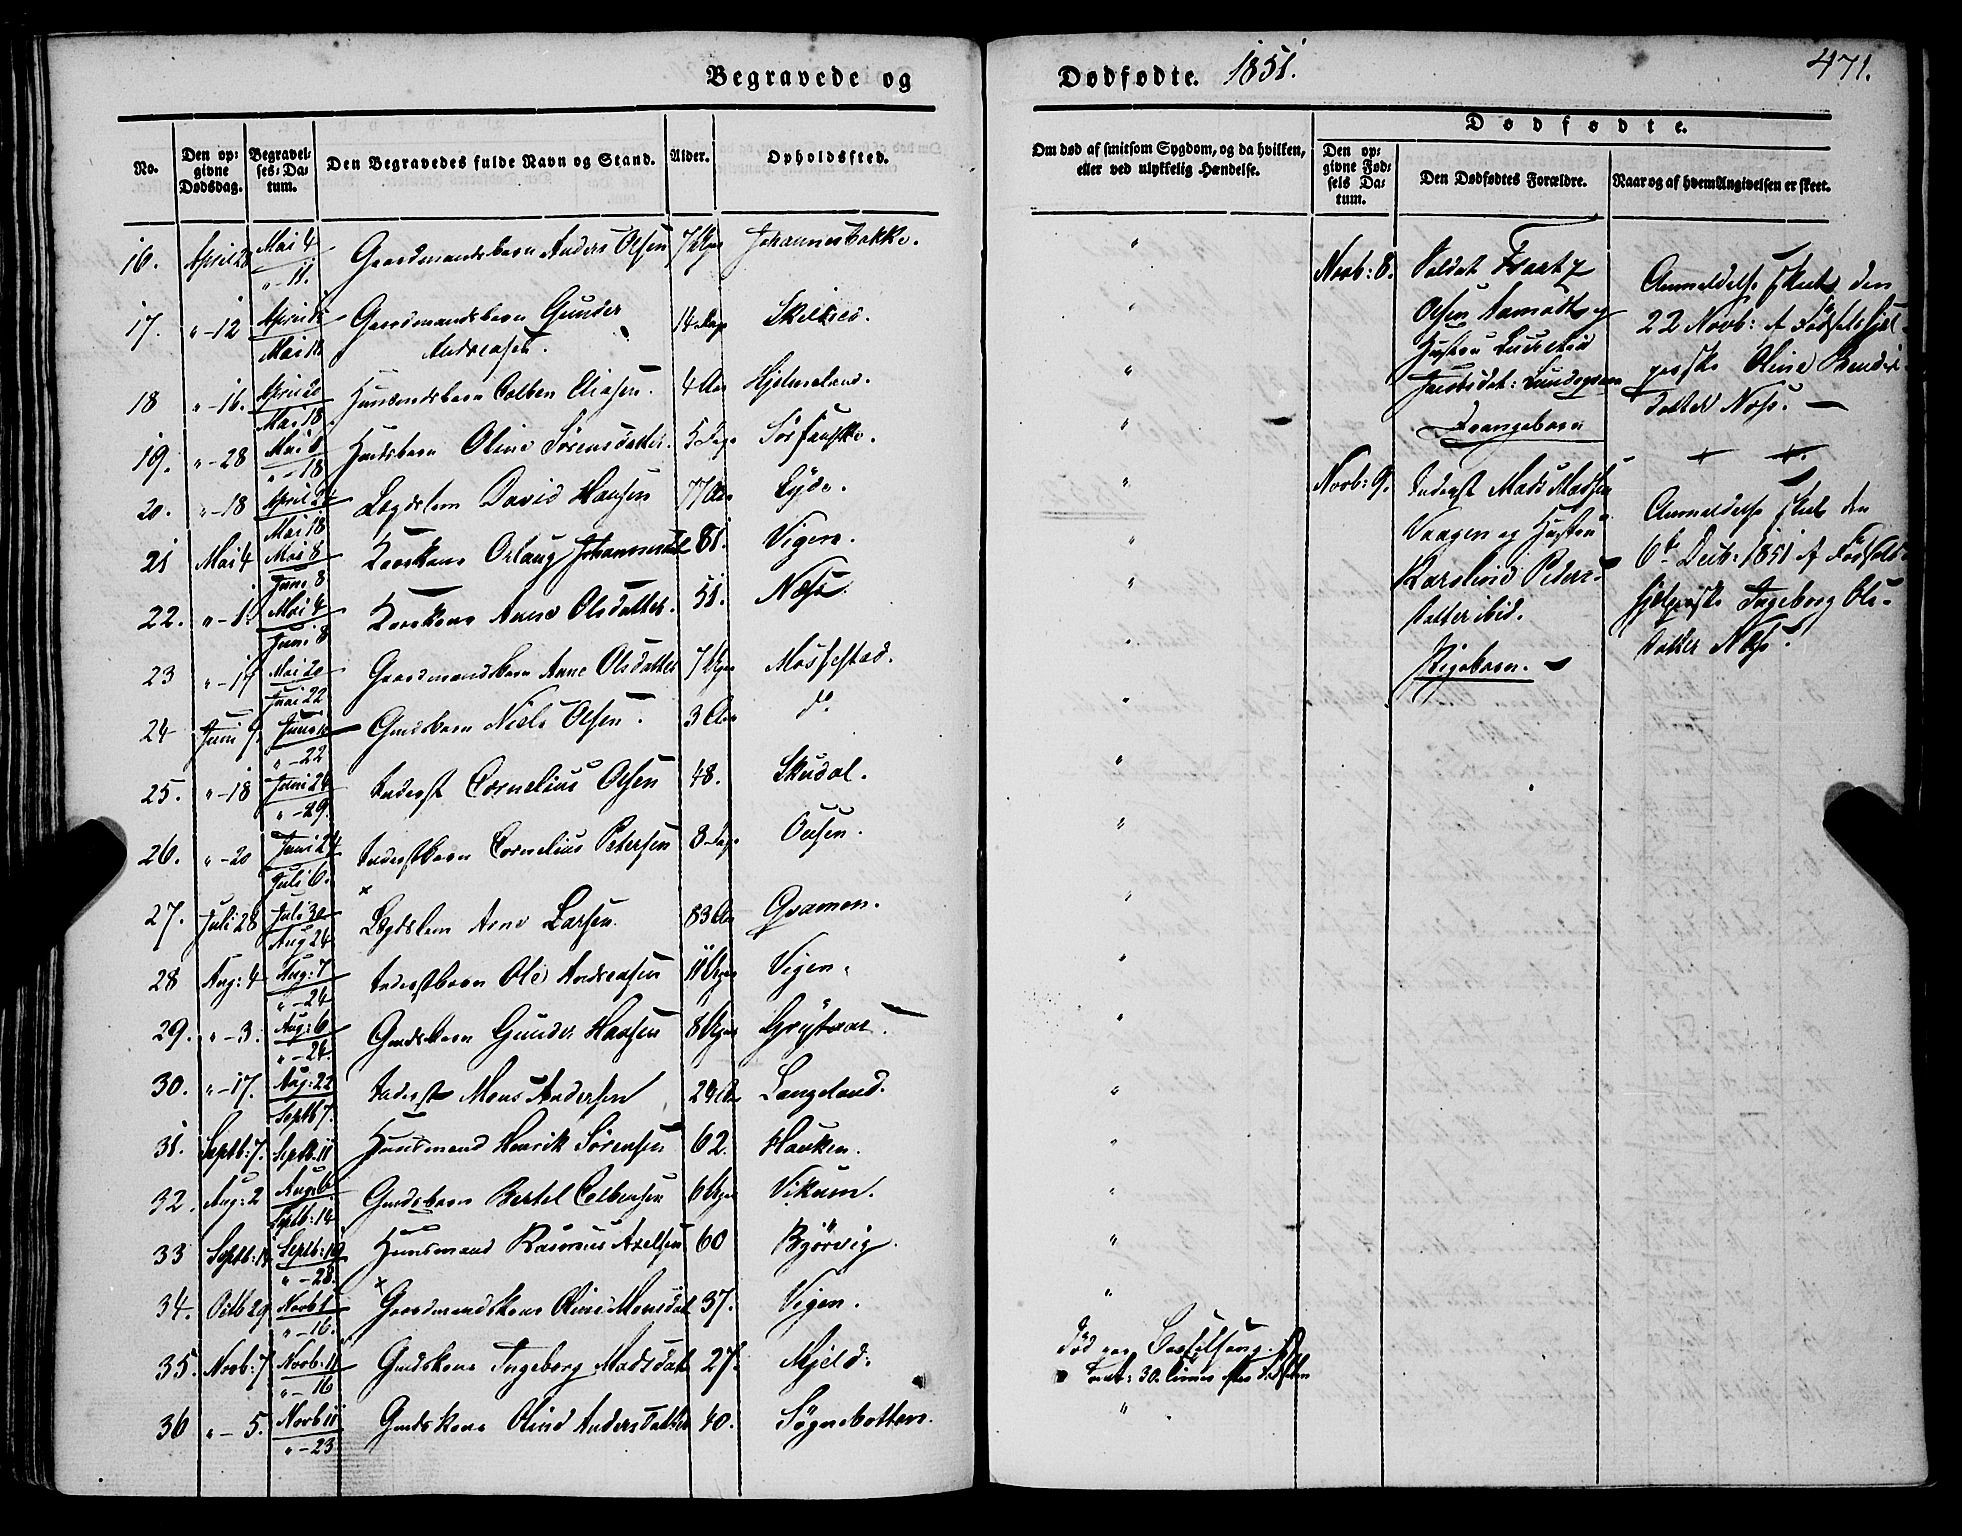 Begravede og
Dødfødte. 1851.
471.
No.
Den opgivne Dødsdag.
Begravelses-Datum.
Den Begravedes fulde Navn og Stand.
Alder.
Opholdssted.
Om død af smitsom Sygdom, og da hvilken, eller ved ulykkelig Hændelse.
Dødfødte.
Den opgivne Fødsels Datum.
Den Dødfødtes Forældre.
Naar og af hvem Angivelsen er skeet.
16. April 28 Mai 4 / " - 11. Gaardmandsbarn Anders Olsen 7 Johannesbakke. "
17. " - 12 Mai 18 Gaardmandsbarn Gunder Andreasen. 14 Dage "
18 " - 16. April 20 / Mai 18. Colben Eliasen. 4 Aar Hjelmeland. "
19. " - 28 Mai 8 / " - 18 Oline Sørensdatter. 5 Dage "
20. " - 18 April 24 / Mai 18 Lægdslem David Hansen 77 Aar Eyde. "
21 Mai 4 Mai 8 / Juni 8 Kaarkone 81. Vigen. "
22. " - 1. Mai 4 / Juni 8 Kaarkone Anne Olsdatter. 51. Næss. "
23 " - 17 Mai 20 / Juni 22 Gaardmandsbarn Anne Olsdatter 7 Mossestad. "
24 Juni 9. " - 22 Gmdsbarn Niels Olsen. 3 Aar do "
25. " - 18 Juni 24 / " - 29. Inderst Cornelius Olsen 48. Skudal. "
26. " - 20 Juni 24 / Juli 6. Inderstbarn Cornelius Petersen 8 Dage Ousen. "
27. Juli 28 Juli 30 / Aug 24 Lægdslem Arne Larsen. 83 Aar Qvamen. "
28 Aug: 4 Aug: 7 / " - 24 Inderstbarn Ole Andreasen 11 Vigen. "
29. " - 3. Aug: 6 / " - 24. Gmdsbarn Gunder Hansen 8 "
30. " - 17. Aug: 22 / Septb 7. Inderst Mons Andersen 29 Aar Langeland. "
31. Septb: 7. Septb. 11 Huusmand Henrik Sørensen 62. Hauken. "
32. Aug: 2 Aug: 6 / Septb: 14 Gmdsbarn Bertel Colbensen 6 Vikum. "
33 Septb: 14 " - 28. Huusmand Rasmus Axelsen 60 Bjørvig. "
34. Octb 29 Novb 1 / " - 16. Gaardmandskone Oline Monsdat 37. Vigen. "
35. Novb: 7 Novb: 11 / " - 16 Gmdskone Ingeborg Madsdat 27. Mjeld.
36 " - 5. Novb 11 / " - 23 Gmdskone Oline Andersdatter 40. Søgnebotten. "
Død paa Barselseng.
30. Timer efter
Novb: 8. Soldat Frantz
Olsen Aamodt og
Hustru
Jacobsdat:
Drengebarn
Anmeldelse skeet den
22 Novb: af Fødselshjel-
perske Oline Bendix-
datter Næss.
Novb: 9. Inderst Mads Madsen
Vaagen og Hustru
Peders-
datter ibid.
Pigebarn.
Anmeldelse skeet den
6te Decb: 1851 af Fødsels-
hjelperske Ingeborg Ols-
datter Næss.